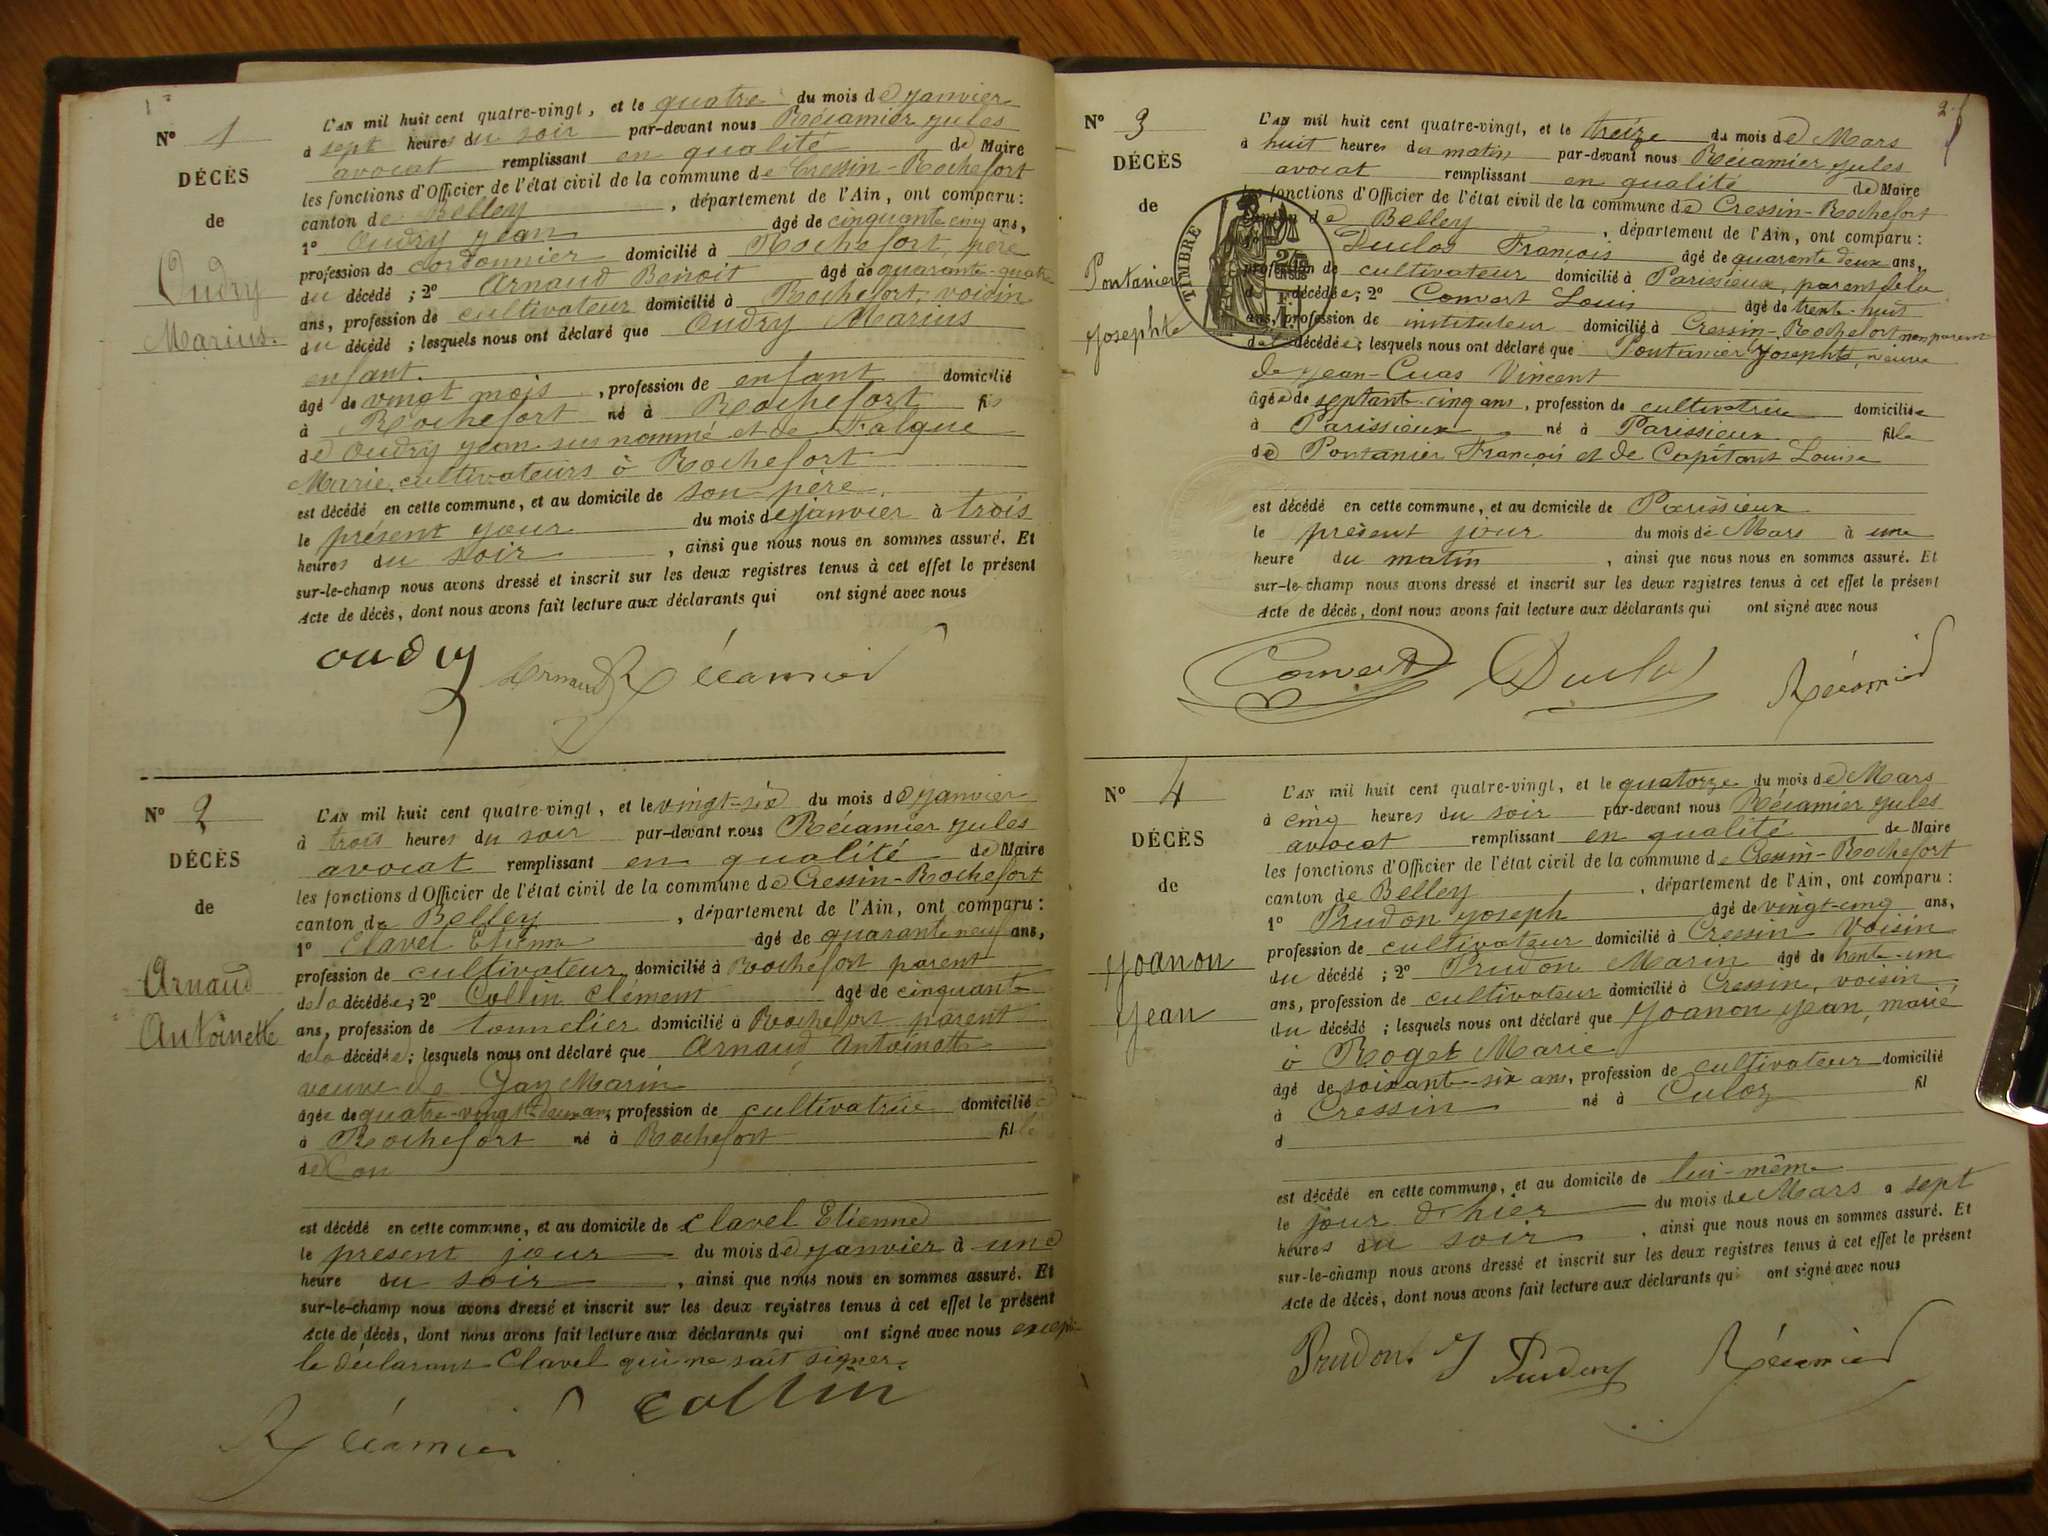 N° 1
DÉCÈS
de
Oudry
Marius.
L'AN mil huit cent quatre-vingt, et le quatre du mois de janvier
à sept heures du soir par-devant nous Récamier jules
avocat remplissant en qualité de Maire
les fonctions d'Officier de l'état civil de la commune de Cressin-Rochefort
canton de Belley, département de l'Ain, ont comparu:
1° Oudry jean âgé de cinquante cinq ans,
profession de cordonnier domicilié à Rochefort, père
du décédé; 2° Arnaud Benoit âgé de quarante-quatre
ans, profession de cultivateur domicilié à Rochefort, voisin
du décédé; lesquels nous ont déclaré que Oudry Marius
enfant.
âgé de vingt mois, profession de enfant domicilié
à Rochefort né à Rochefort fils
de Oudry jean susnommé et de Falque
Marie, cultivateurs à Rochefort
est décédé en cette commune, et au domicile de son père.
le présent jour du mois de janvier à trois
heures du soir, ainsi que nous nous en sommes assuré. Et
sur-le-champ nous avons dressé et inscrit sur les deux registres tenus à cet effet le présent
Acte de décès, dont nous avons fait lecture aux déclarants qui ont signé avec nous
oudry Arnaud Récamier
N° 2
DÉCÈS
de
Arnaud
Antoinette
L'AN mil huit cent quatre-vingt, et le vingt-six du mois de janvier
à trois heures du soir par-devant nous Récamier jules
avocat remplissant en qualité de Maire
les fonctions d'Officier de l'état civil de la commune de Cressin-Rochefort
canton de Belley, département de l'Ain, ont comparu:
1° Clavel Etienne âgé de quarante neuf ans,
profession de cultivateur domicilié à Rochefort parent
de la décédée; 2° Collin Clément âgé de cinquante
ans, profession de tonnelier domicilié à Rochefort parent
de la décédée; lesquels nous ont déclaré que Arnaud Antoinette
veuve de Marin
âgée de quatre-vingt deux ans, profession de cultivatrice domicilié
à Rochefort né à Rochefort fille
de
est décédé en cette commune, et au domicile de Clavel Etienne
le présent jour du mois de janvier à une
heure du soir, ainsi que nous nous en sommes assuré. Et
sur-le-champ nous avons dressé et inscrit sur les deux registres tenus à cet effet le présent
Acte de décès, dont nous avons fait lecture aux déclarants qui ont signé avec nous excepté
le déclarant Clavel qui ne sait signer.
Récamier collin
2
N° 3
DÉCÈS
de
Pontanier
josephte
TIMBRE
L'AN mil huit cent quatre-vingt, et le treize du mois de Mars
à huit heures du matin par-devant nous Récamier jules
avocat remplissant en qualité de Maire
les fonctions d'Officier de l'état civil de la commune de Cressin-Rochefort
canton de Belley, département de l'Ain, ont comparu:
Duclos François âgé de quarante deux ans,
profession de cultivateur domicilié à Parissieux, parent de la
décédée; 2° Convert Louis âgé de trente-huit
ans, profession de instituteur domicilié à Cressin-Rochefort non parent
de la décédée; lesquels nous ont déclaré que Pontanier josephte, veuve
de jean-Cuas Vincent
âgée de septante-cinq ans, profession de cultivatrice domiciliée
à Parissieux né à Parissieux fille
de Pontanier François et de Capitant Louise
est décédé en cette commune, et au domicile de Parissieux
le présent jour du mois de Mars à une
heure du matin, ainsi que nous nous en sommes assuré. Et
sur-le-champ nous avons dressé et inscrit sur les deux registres tenus à cet effet le présent
Acte de décès, dont nous avons fait lecture aux déclarants qui ont signé avec nous
Convert Duclos Récamier
N° 4
DÉCÈS
de
Joanon
jean
L'AN mil huit cent quatre-vingt, et le quatorze du mois de Mars
à cinq heures du soir par-devant nous Récamier jules
avocat remplissant en qualité de Maire
les fonctions d'Officier de l'état civil de la commune de Cressin-Rochefort
canton de Belley, département de l'Ain, ont comparu:
1° Prudon joseph âgé de vingt-cinq ans,
profession de cultivateur domicilié à Cressin Voisin
du décédé; 2° Prudon Marin âgé de trente-un
ans, profession de cultivateur domicilié à Cressin, voisin
du décédé; lesquels nous ont déclaré que Joanon jean, marié
à Roget Marie
âgé de soixante-six ans, profession de cultivateur domicilié
à Cressin né à Culoz fil
d
est décédé en cette commune, et au domicile de lui-même
le jour d'hier du mois de Mars à sept
heures du soir, ainsi que nous nous en sommes assuré. Et
sur-le-champ nous avons dressé et inscrit sur les deux registres tenus à cet effet le présent
Acte de décès, dont nous avons fait lecture aux déclarants qui ont signé avec nous
Prudon J Prudon Récamier